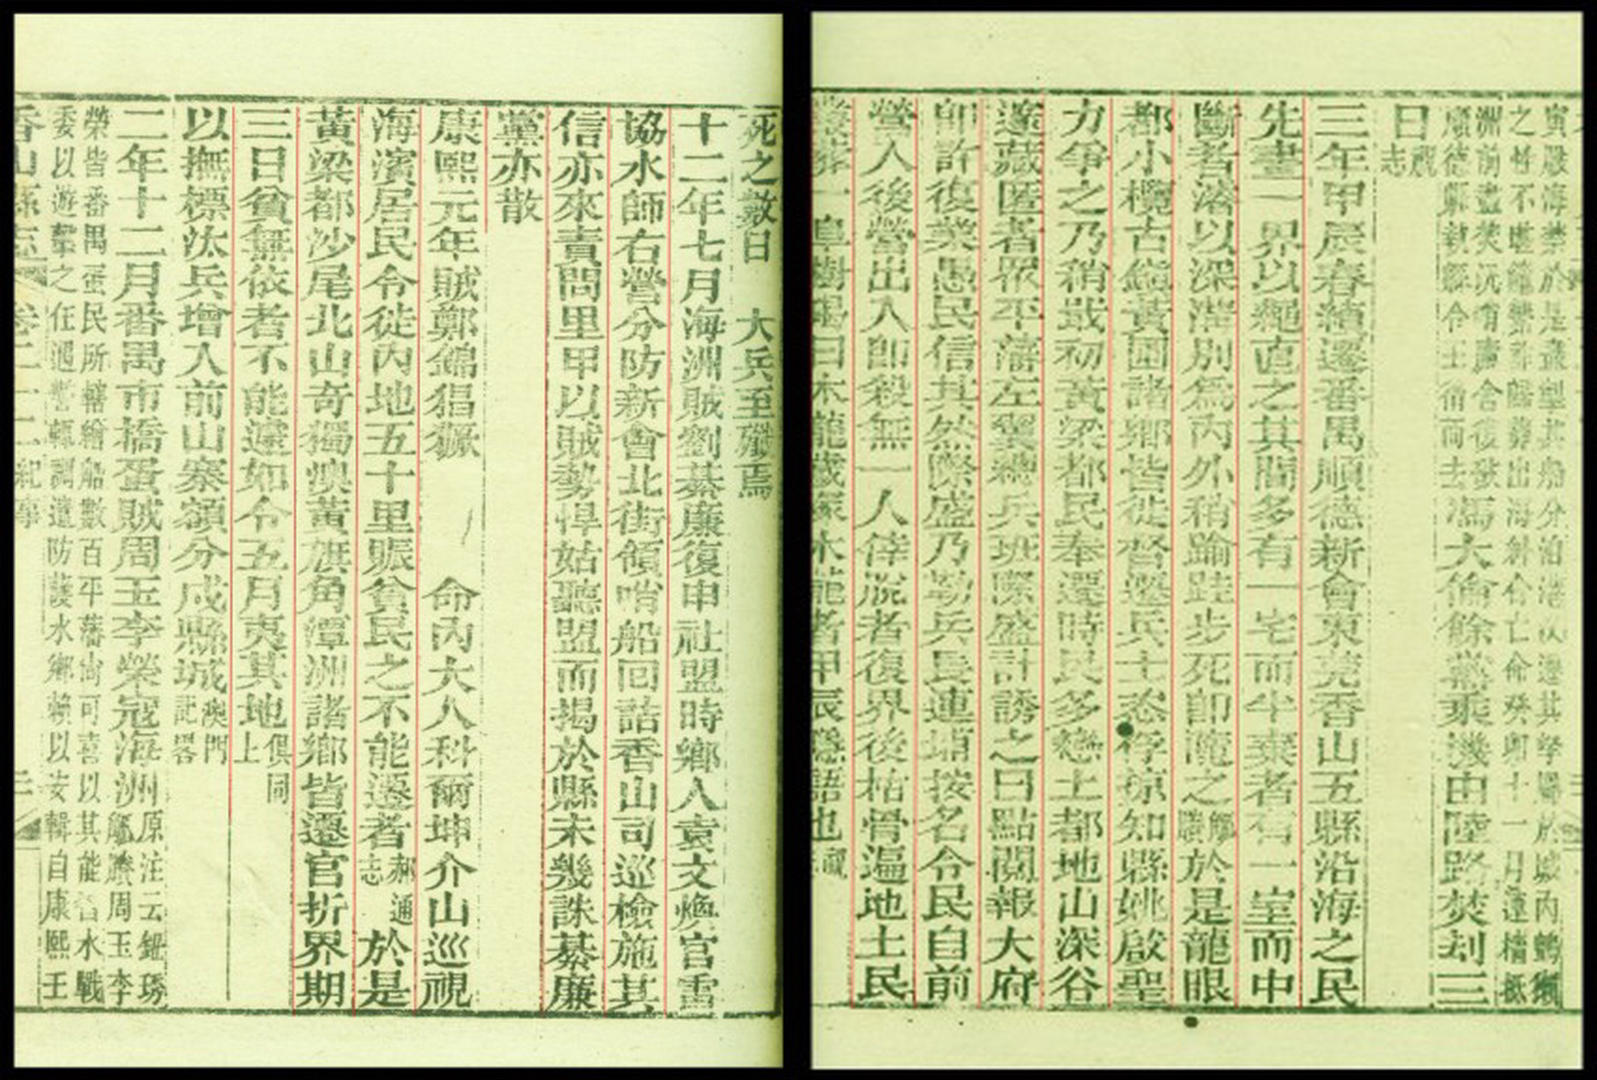 死之數日　大兵至殲焉
十二年七月海洲賊劉綦廉復申社盟時鄉人袁文煥官雷
協水師右營分防新會北街領哨船回詰香山司巡檢施其
信亦來責問里甲以賊勢悍姑聽盟而揭於縣未幾誅綦廉
黨亦散
康熙元年賊鄭錦猖獗　命內大人科爾坤介山巡視
海濱居民令徙內地五十里賑貧民之不能遷者郝通志於是
黃梁都沙尾北山奇獨澳黃旗角潭洲諸鄉皆遷官折界期
三日貧無依者不能遽如令五月夷其地俱同上
以撫標汰兵增入前山寨額分戍縣城澳門記畧
二年十二月番禺市橋蛋賊周玉李榮寇海洲原注云鈕琇觚賸周玉李
榮皆番禺蛋民所轄繒船數百平藩尚可喜以其能習水戰
委以遊擊之任遇警輒調遣防護水鄉賴以安輯自康熙壬
香山縣志 卷二十二 紀事
寅設海禁於是盡掣其船分泊港汊遷其孥屬於城內
之性不堪籠縶詐歸葬出海糾合亡命癸卯十一月連檣抵
洲前盡焚汛哨廬舍
順德縣執縣令王而去馮大倫餘黨乘機由陸路焚刦三
日祝志
三年甲辰春續遷番禺順德新會東莞香山五縣沿海之民
先畫一界以繩直之其間多有一宅而半棄者有一室而中
斷者濬以深溝別為內外稍踰跬步死即隨之觚賸於是龍眼
都小欖古鎮黃圃諸鄉皆徙督遷兵士恣俘掠知縣姚啟聖
力爭之乃稍戢初黃梁都民奉遷時民多戀土都地山深谷
邃藏匿者眾平藩左翼總兵班際盛計誘之曰點閱報大府
即許復業愚民信其然際盛乃勒兵長連埔按名令民自前
營入後營出入即殺無一人倖脫者復界後枯骨遍地土民
叢葬一阜樹碣曰木龍歲冢木龍者甲辰隱語也祝